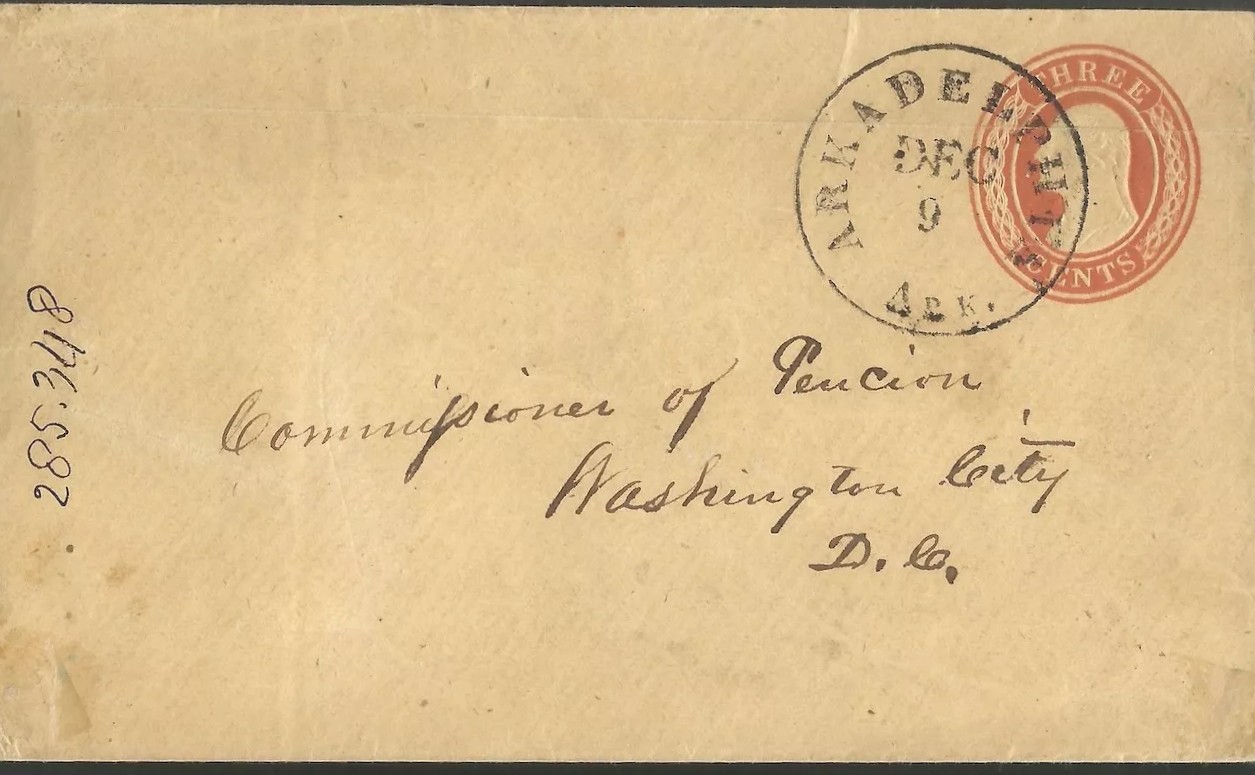 THREE
CENTS
ARKADELPHIA
DEC
9
ARK.
Commissioner of Pencion
Washington City
D. C.
285.348